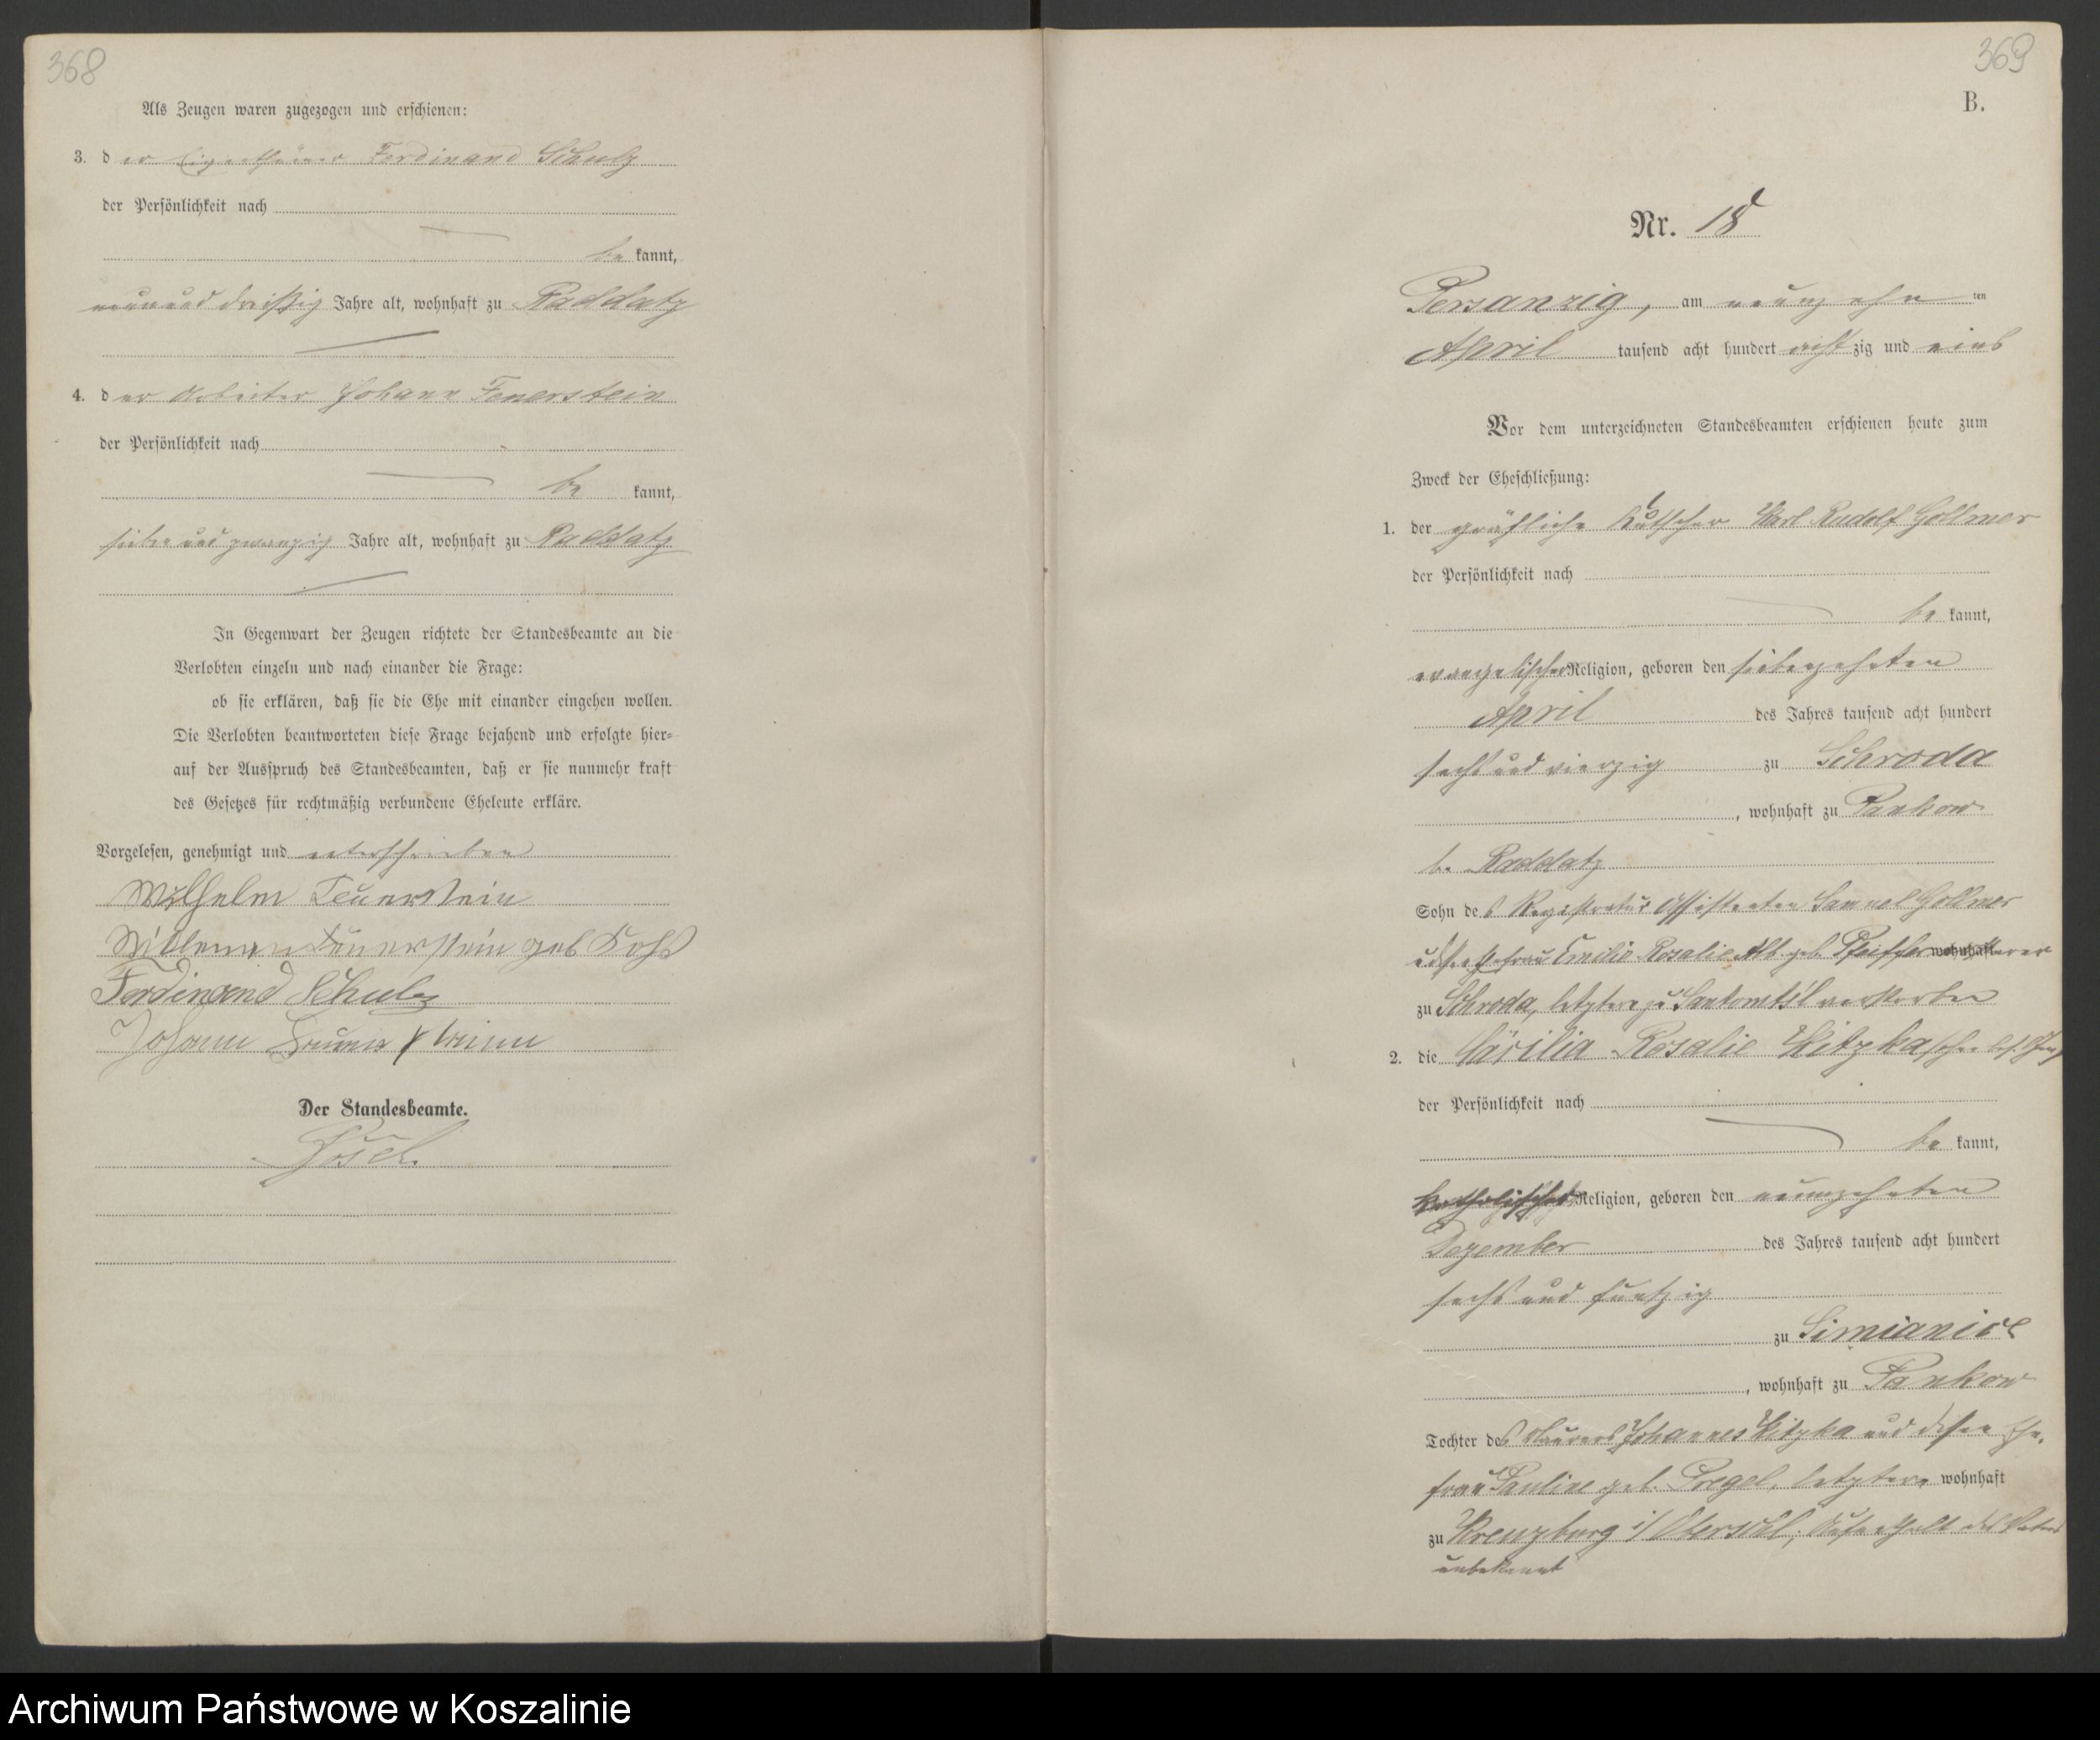 368
Als Zeugen waren zugezogen und erschienen:
3. der Eigenthümer Ferdinand Schulz
der Persönlichkeit nach
be kannt,
neun und dreißig Jahre alt, wohnhaft zu Raddatz
4. der Arbeiter Johann Feuerstein
der Persönlichkeit nach
be kannt,
sieben und zwanzig Jahre alt, wohnhaft zu Raddatz
In Gegenwart der Zeugen richtete der Standesbeamte an die
Verlobten einzeln und nach einander die Frage:
ob sie erklären, daß sie die Ehe mit einander eingehen wollen.
Die Verlobten beantworteten diese Frage bejahend und erfolgte hier-
auf der Ausspruch des Standesbeamten, daß er sie nunmehr kraft
des Gesetzes für rechtmäßig verbundene Eheleute erkläre.
Vorgelesen, genehmigt und unterschrieben
Wilhelm Feuerstein
Feuerstein geb
Ferdinand Schulz
Johann
Der Standesbeamte.
369
B.
Nr. 18
Persanzig, am neunzehn ten
April tausend acht hundert acht zig und eins
Vor dem unterzeichneten Standesbeamten erschienen heute zum
Zweck der Eheschließung:
1. der gräfliche Kutscher Karl Rudolf Gollmer
der Persönlichkeit nach
be kannt,
evangelischer Religion, geboren den siebenzehnten
April des Jahres tausend acht hundert
sechs und vierzig zu Schroda
, wohnhaft zu Pankow
be Raddatz
Sohn des Registratur Assistenten Samuel Gollmer
Ehefrau Emilie Rosalie geb. Pfeiffer wohnhaft
zu Schroda, letztere zu verstorben
2. die Cäcilia Rosalie Kitzka
der Persönlichkeit nach
be kannt,
katholischer Religion, geboren den neunzehnten
Dezember des Jahres tausend acht hundert
sechs und funfzig
zu Simianice
, wohnhaft zu Pankow
Tochter des Maurers Johannes Kitzka und dessen Ehe-
frau Pauline geb. Pregel, letztere wohnhaft
zu Kreuzburg i/ Oberschl, Aufenthalt des Vaters
unbekannt
Archiwum Państwowe w Koszalinie